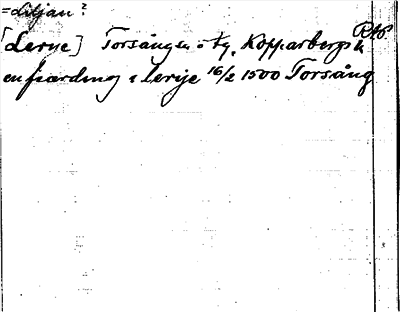 = Liljan?
[Lerne] Torsångs sn o tg, Kopparbergs l.
en fiærdung i lerije 16/2 1500 Torsång